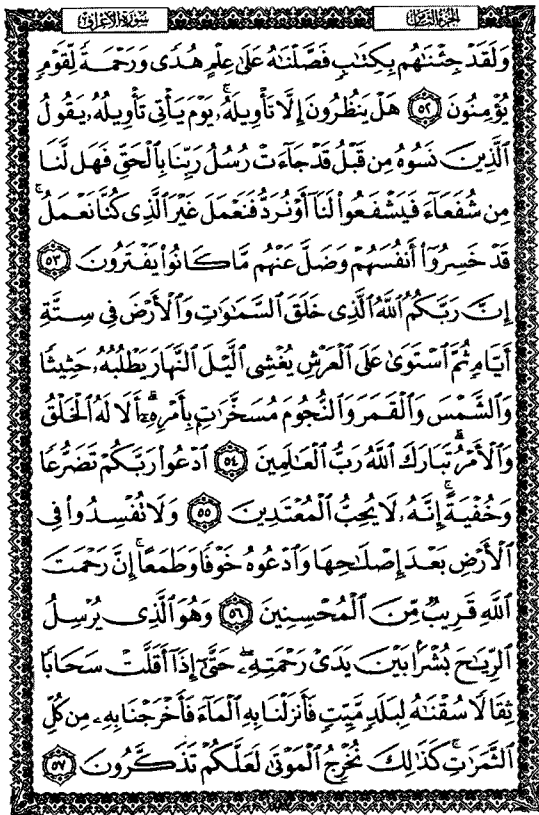 الجزء الثامن
سورة الأعراف
وَلَقَدْ جِئْنَٰهُم بِكِتَٰبٍ فَصَّلْنَٰهُ عَلَىٰ عِلْمٍ هُدًى وَرَحْمَةً لِّقَوْمٍ
يُؤْمِنُونَ ٥٢ هَلْ يَنظُرُونَ إِلَّا تَأْوِيلَهُۥ ۚ يَوْمَ يَأْتِى تَأْوِيلُهُۥ يَقُولُ
ٱلَّذِينَ نَسُوهُ مِن قَبْلُ قَدْ جَآءَتْ رُسُلُ رَبِّنَا بِٱلْحَقِّ فَهَل لَّنَا
مِن شُفَعَآءَ فَيَشْفَعُوا۟ لَنَآ أَوْ نُرَدُّ فَنَعْمَلَ غَيْرَ ٱلَّذِى كُنَّا نَعْمَلُ ۚ
قَدْ خَسِرُوٓا۟ أَنفُسَهُمْ وَضَلَّ عَنْهُم مَّا كَانُوا۟ يَفْتَرُونَ ٥٣
إِنَّ رَبَّكُمُ ٱللَّهُ ٱلَّذِى خَلَقَ ٱلسَّمَٰوَٰتِ وَٱلْأَرْضَ فِى سِتَّةِ
أَيَّامٍ ثُمَّ ٱسْتَوَىٰ عَلَى ٱلْعَرْشِ يُغْشِى ٱلَّيْلَ ٱلنَّهَارَ يَطْلُبُهُۥ حَثِيثًا
وَٱلشَّمْسَ وَٱلْقَمَرَ وَٱلنُّجُومَ مُسَخَّرَٰتٍۭ بِأَمْرِهِۦٓ ۗ أَلَا لَهُ ٱلْخَلْقُ
وَٱلْأَمْرُ ۗ تَبَارَكَ ٱللَّهُ رَبُّ ٱلْعَٰلَمِينَ ٥٤ ٱدْعُوا۟ رَبَّكُمْ تَضَرُّعًا
وَخُفْيَةً ۚ إِنَّهُۥ لَا يُحِبُّ ٱلْمُعْتَدِينَ ٥٥ وَلَا تُفْسِدُوا۟ فِى
ٱلْأَرْضِ بَعْدَ إِصْلَٰحِهَا وَٱدْعُوهُ خَوْفًا وَطَمَعًا ۚ إِنَّ رَحْمَتَ
ٱللَّهِ قَرِيبٌ مِّنَ ٱلْمُحْسِنِينَ ٥٦ وَهُوَ ٱلَّذِى يُرْسِلُ
ٱلرِّيَٰحَ بُشْرًۢا بَيْنَ يَدَىْ رَحْمَتِهِۦ ۖ حَتَّىٰٓ إِذَآ أَقَلَّتْ سَحَابًا
ثِقَالًا سُقْنَٰهُ لِبَلَدٍ مَّيِّتٍ فَأَنزَلْنَا بِهِ ٱلْمَآءَ فَأَخْرَجْنَا بِهِۦ مِن كُلِّ
ٱلثَّمَرَٰتِ ۚ كَذَٰلِكَ نُخْرِجُ ٱلْمَوْتَىٰ لَعَلَّكُمْ تَذَكَّرُونَ ٥٧